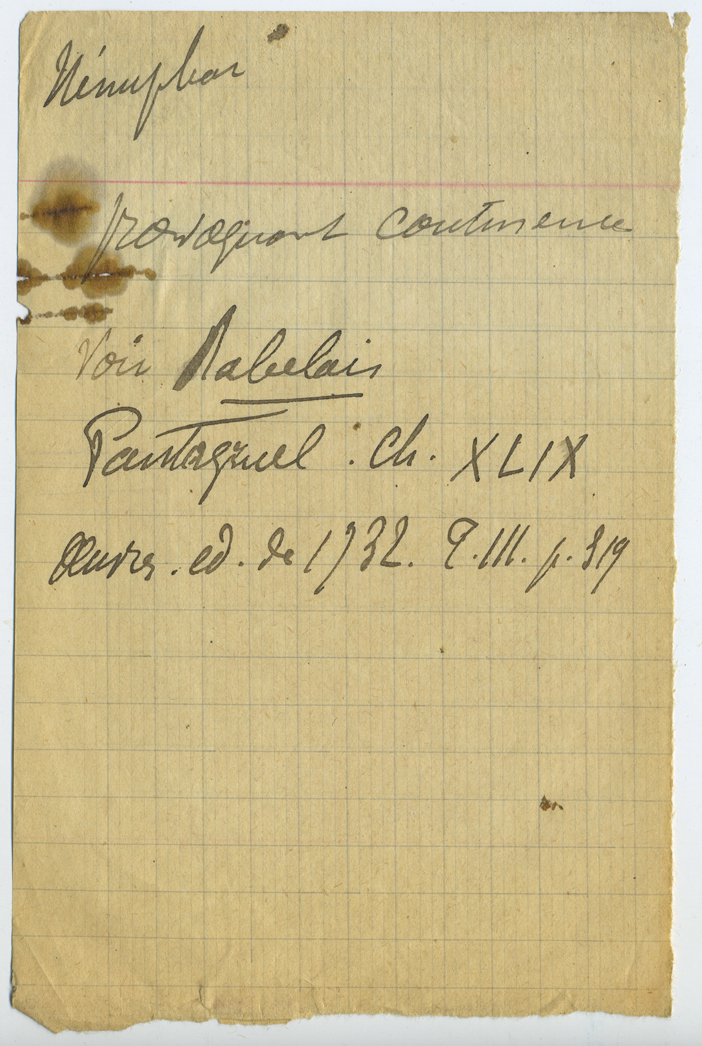 Nénuphar
provoquant continence
Voir Rabelais
Pantagruel : ch. XLIX
Œuvres. ed. de 1732. T. III. p. 319